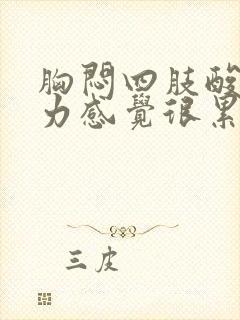 胸悶四肢酸
力感覺很累
三皮